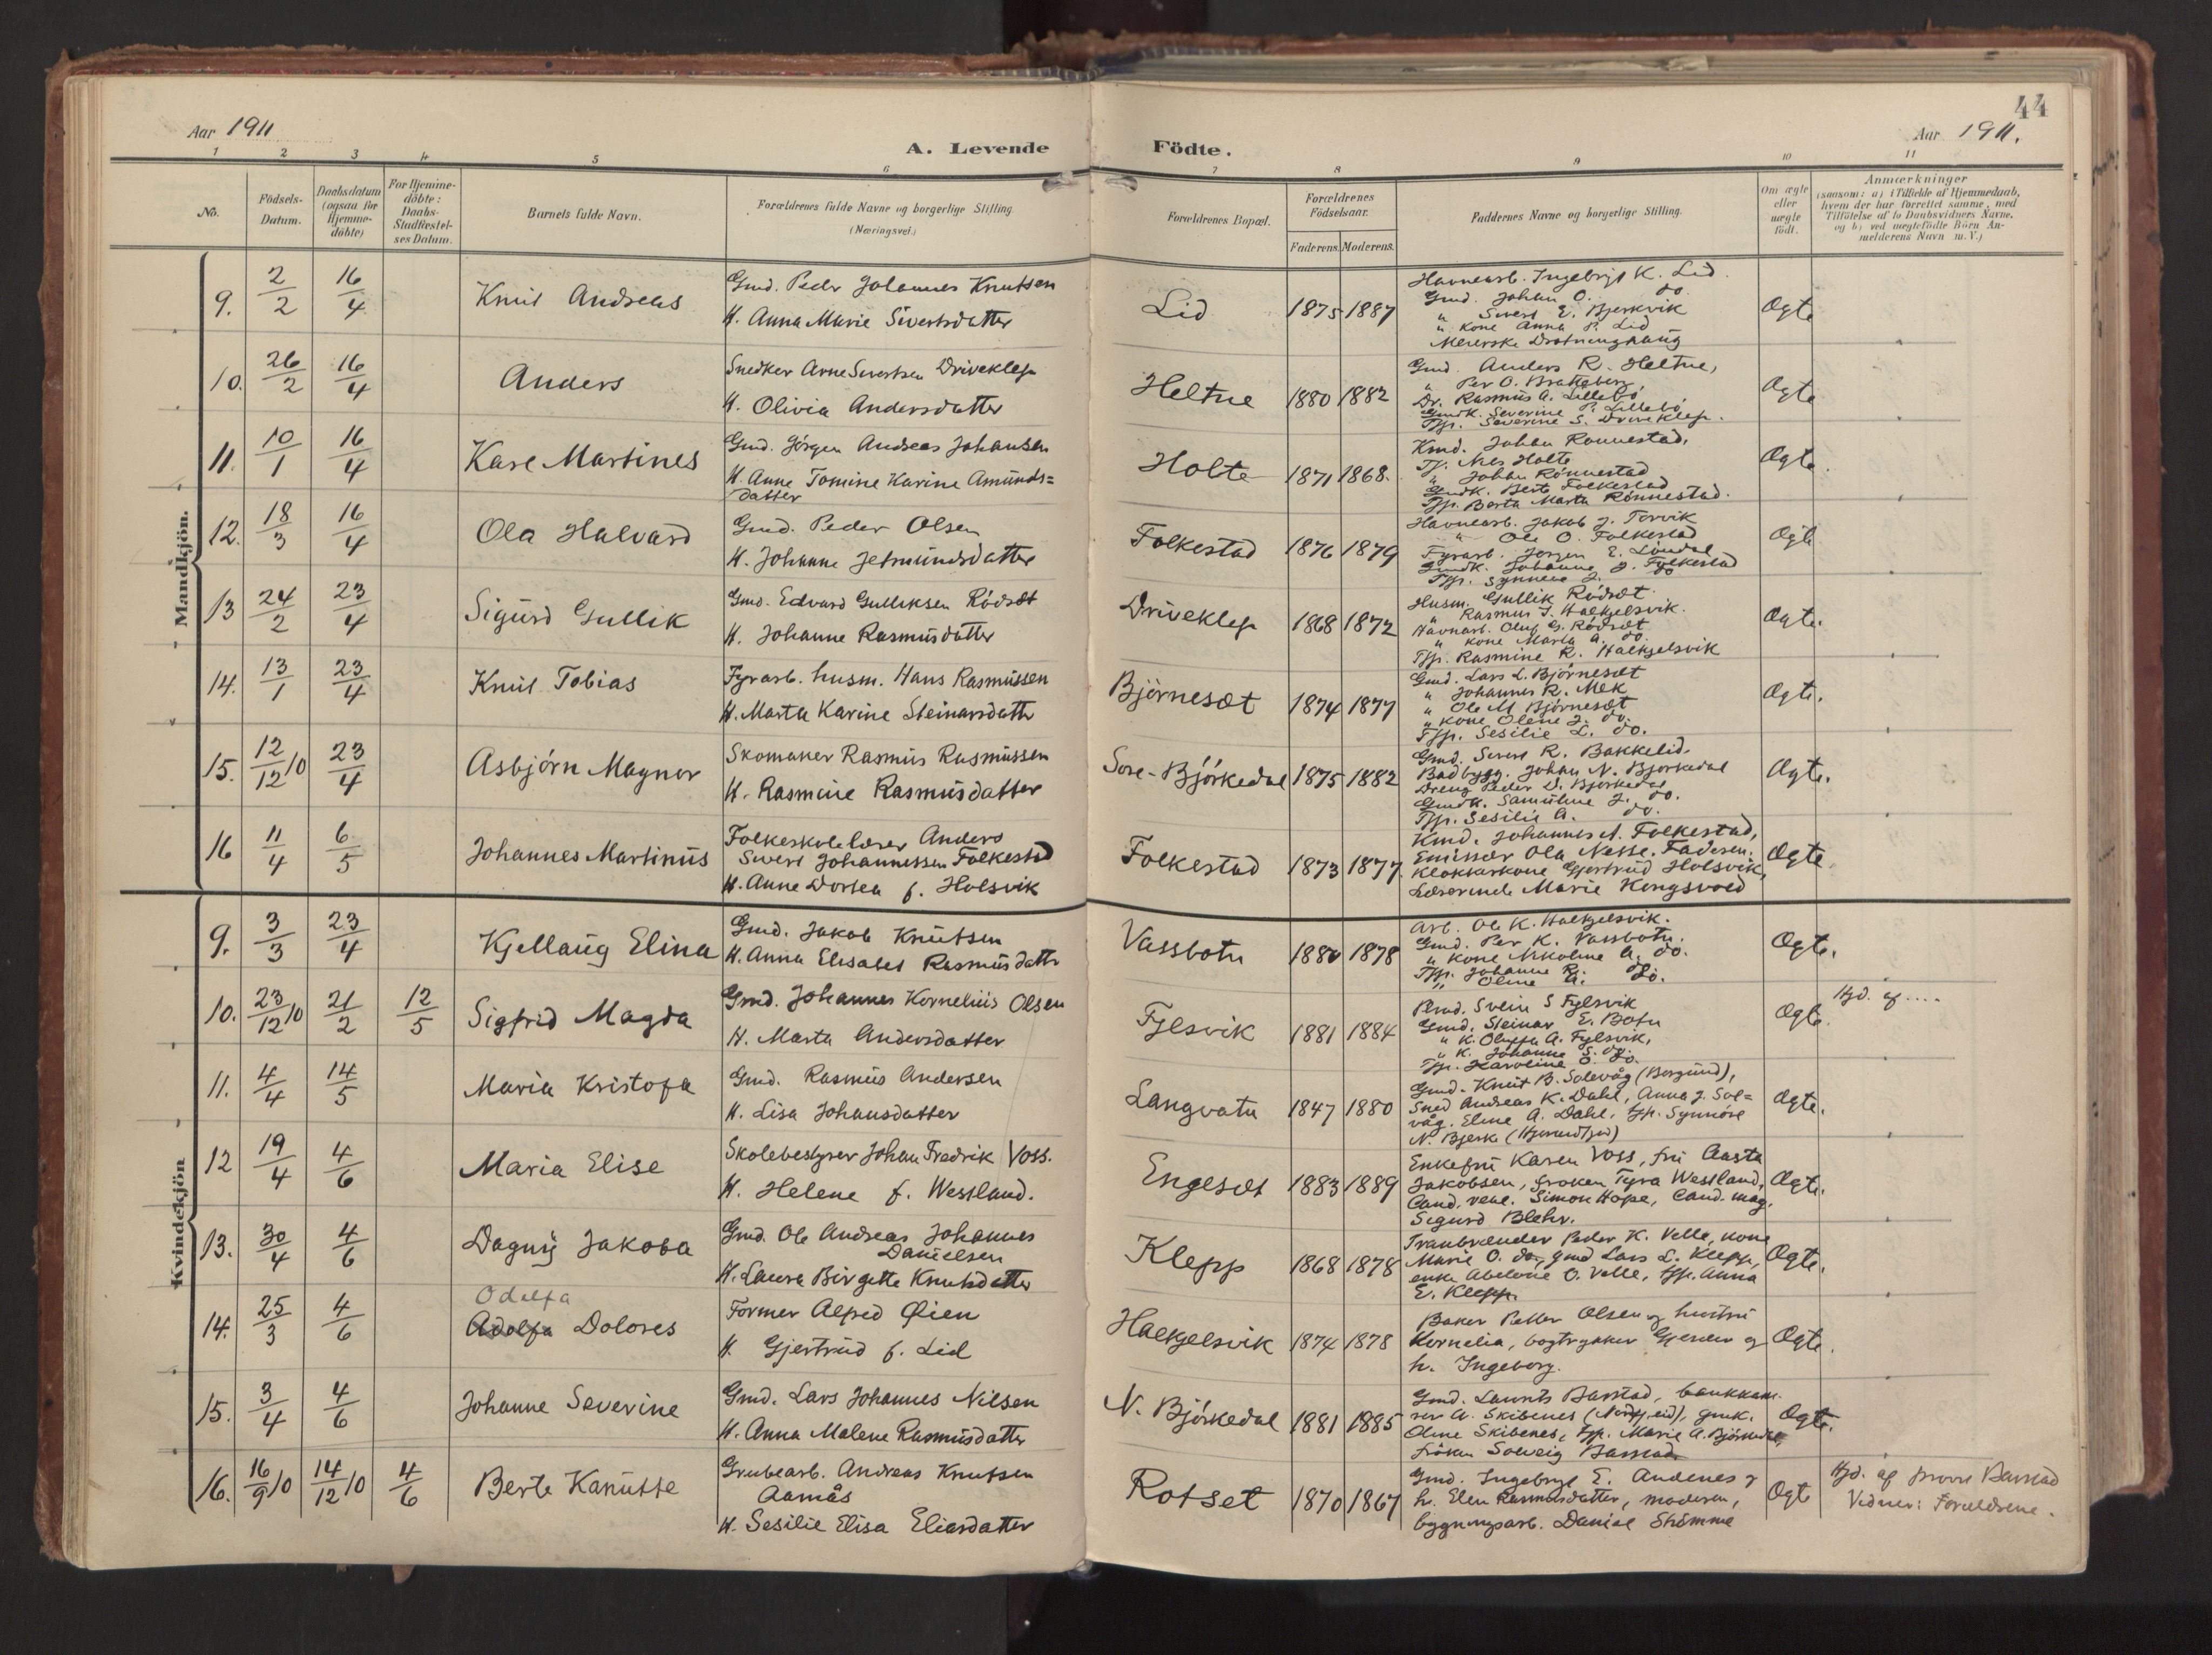 44
Aar 1911
A. Levende Födte.
Aar 1911.
1 2 3 4 5 6 7 8 9 10 11
No.
Födsels-Datum.
Daabsdatum (ogsaa for Hjemme-döbte)
For Hjemme-döbte: Daabs-Stadfestel-ses Datum.
Barnets fulde Navn.
Forældrenes fulde Navne og borgerlige Stilling
(Næringsvei.)
Forældrenes Bopæl.
Forældrenes Födselsaar.
Faderens. Moderens.
Faddernes Navne og borgerlige Stilling.
Om ægte eller uægte födt.
Anmærkninger
(saasom: a) i Tilfælde af Hjemmedaab,
hvem der har forrettet samme, med
Tilföielse af to Daabsvidners Navne,
og b) ved uægtefödte Börn An-
melderens Navn m.V.)
Mandkjön.
9. 2/2 16/4 Knut Andreas
Gmd. Peder Johannes Knutsen
H. Anna Marie Sivertsdatter
Lid 1875 1887
Havnearb. Ingebrigt K. Lid.
Gmd. Johan O. do.
" Sivert E. Bjerkvik
" kone Anna P. Lid
Meierske Drotninghaug
Ægte
10. 26/2 16/4 Anders
Snedker Arne Sivertsen Driveklep
H. Olivia Andersdatter
Heltne 1880 1882
Gmd. Anders R. Heltne,
" Per O. Brakeberg,
Dr. Rasmus A. Lillebö
Gmdk. Severine P. Lillebö
Tjp. Severine S. Driveklep.
Ægte
11. 10/1 16/4 Kare Martines
Gmd. Jörgen Andreas Johansen
H. Anne Tomine Karine Amunds=
datter
Holte 1871 1868.
Kmd. Johan Rönnestad,
Tj. Nils Holte
" Johan Rönnestad
Gmdk. Berte Folkestad
Tjp. Berta Marta Rönnestad.
Ægte.
12. 18/3 16/4 Ola Halvard
Gmd. Peder Olsen
H. Johanne Jetmundsdatter
Folkestad 1876 1879
Havnearb. Jakob J. Torvik
" Ole O. Folkestad
Fyrarb. Jörgen E. Löndal
Gmdk. Johanne J. Folkestad
Tjp. Synneve J. do
Ægte
13 24/2 23/4 Sigurd Gullik
Gmd. Edvard Gulliksen Rödsæt
H. Johanne Rasmusdatter
Driveklep 1868 1872
Husm. Gullik Rödsæt
" Rasmus J. Halkjelsvik.
Havnarb. Oluf G. Rödsæt
" kone Marta A. do.
Tjp. Rasmine R. Halkjelsvik
Ægte.
14. 13/1 23/4 Knut Tobias
Fyrarb. husm. Hans Rasmussen
H. Marta Karine Steinarsdattr
Björnesæt 1874 1877
Gmd. Lars L. Björnesæt
" Johannes R. Mek
" Ole M Björnesæt
" kone Olene J. do.
Tjp. Sesilie L. do.
Ægte.
15. 12/12 10 23/4 Asbjörn Magnor
Skomaker Rasmus Rasmussen
H. Rasmine Rasmusdatter
Sore-Björkedal 1875 1882
Gmd. Sivert R. Bakkelid.
Badbygg. Johan N. Bjorkedal
Dreng Peder D. Bjorkedal
Gmdk. Samuline J. do.
Tjp. Sesilie A. do.
Ægte.
16 11/4 6/5 Johannes Martinus
Folkeskolelærer Anders
Sivert Johannessen Folkestad
H. Anne Dortea f. Holsvik
Folkestad 1873 1877.
Kmd. Johannes A. Folkestad,
Emissær Ola Nesse. Faderen.
Klokkarkone Gjertrud Holsvik,
Lærerinde Marie Kongsvold
Ægte
Kvindekjön
9. 3/3 23/4 Kjellaug Elina
Gmd. Jakob Knutsen
H. Anna Elisabet Rasmusdattr
Vassbotn 1880 1878
Arb. Ole K. Halkjelsvik.
Gmd. Per K. Vassbotn.
" kone Nikoline A. do.
Tjp. Johanne R. do.
" Oline A. do.
Ægte.
10. 23/12 10 21/2 12/5 Sigfrid Magda
Gmd. Johannes Kornelius Olsen
H. Marta Andersdatter
Fylsvik 1881 1884
Svein S Fylsvik
Gmd. Steinar E. Botn
" K. Oluffa A. Fylsvik,
" K. Johanne S. do.
Tjp. Karoline O. do.
Ægte.
Hjd. af ....
11. 4/4 14/5 Maria Kristofa
Gmd. Rasmus Andersen
H. Lisa Johansdatter
Langvatn 1847 1880
Gmd. Knut B. Solevåg (Borgund),
Sned Andreas K. Dahl, Anna J. Sole=
våg. Eline A. Dahl. tjp. Synnöve
N. Bjerk (Hjörundfjord)
Ægte.
12 19/4 4/6 Maria Elise
Skolebestyrer Johan Fredrik Voss.
H. Helene f. Westland.
Engeset 1883 1889
Enkefru Karen Voss, fru Aasta
Jakobsen, froken Tyra Westland,
Cand. real. Simon Hope, Cand. mag.
Sigurd Blehr.
Ægte.
13. 30/4 4/6 Dagny Jakoba
Gmd. Ole Andreas Johannes
Danielsen
H. Laura Birgitte Knutsdatter
Klepp 1868 1878
Tranbrænder Peder K. Velle, kone
Marie O. do, gmd Lars L. Klepp,
enke Abelone O. Velle, tjp. Anna
E. Klepp.
Ægte.
14. 25/3 4/6 Odelfa
Adolfa Dolores
Former Alfred Øien
H. Gjertrud f. Lid
Halkjelsvik 1874 1878
Baker Petter Olsen og hustru
Kornelia, bogtrykker Gjerder og
h. Ingeborg.
Ægte.
15. 3/4 4/6 Johanne Severine
Gmd. Lars Johannes Nilsen
H. Anna Malene Rasmusdattr
N. Björkedal 1881 1885
Gmd. Laurits Barstad, bankkasse
rer A. Skibenes (Nordfj.eid), gmk.
Oline Skibenes, tjp. Marie A. Björkedal,
fröken Solveig Barstad
Ægte.
16. 16/9 10 14/12 10 4/6 Berte Kanutte
Grubearb. Andreas Knutsen
Aamås
H. Sesilie Elisa Eliasdatter
Rotset 1870 1867
Gmd. Ingebrigt E. Andenes og
h. Elen Rasmusdatter, moderen,
bygningsarb. Daniel Strömme
Ægte
Hjd. af provst Barstad
Vidner: Forældrene.